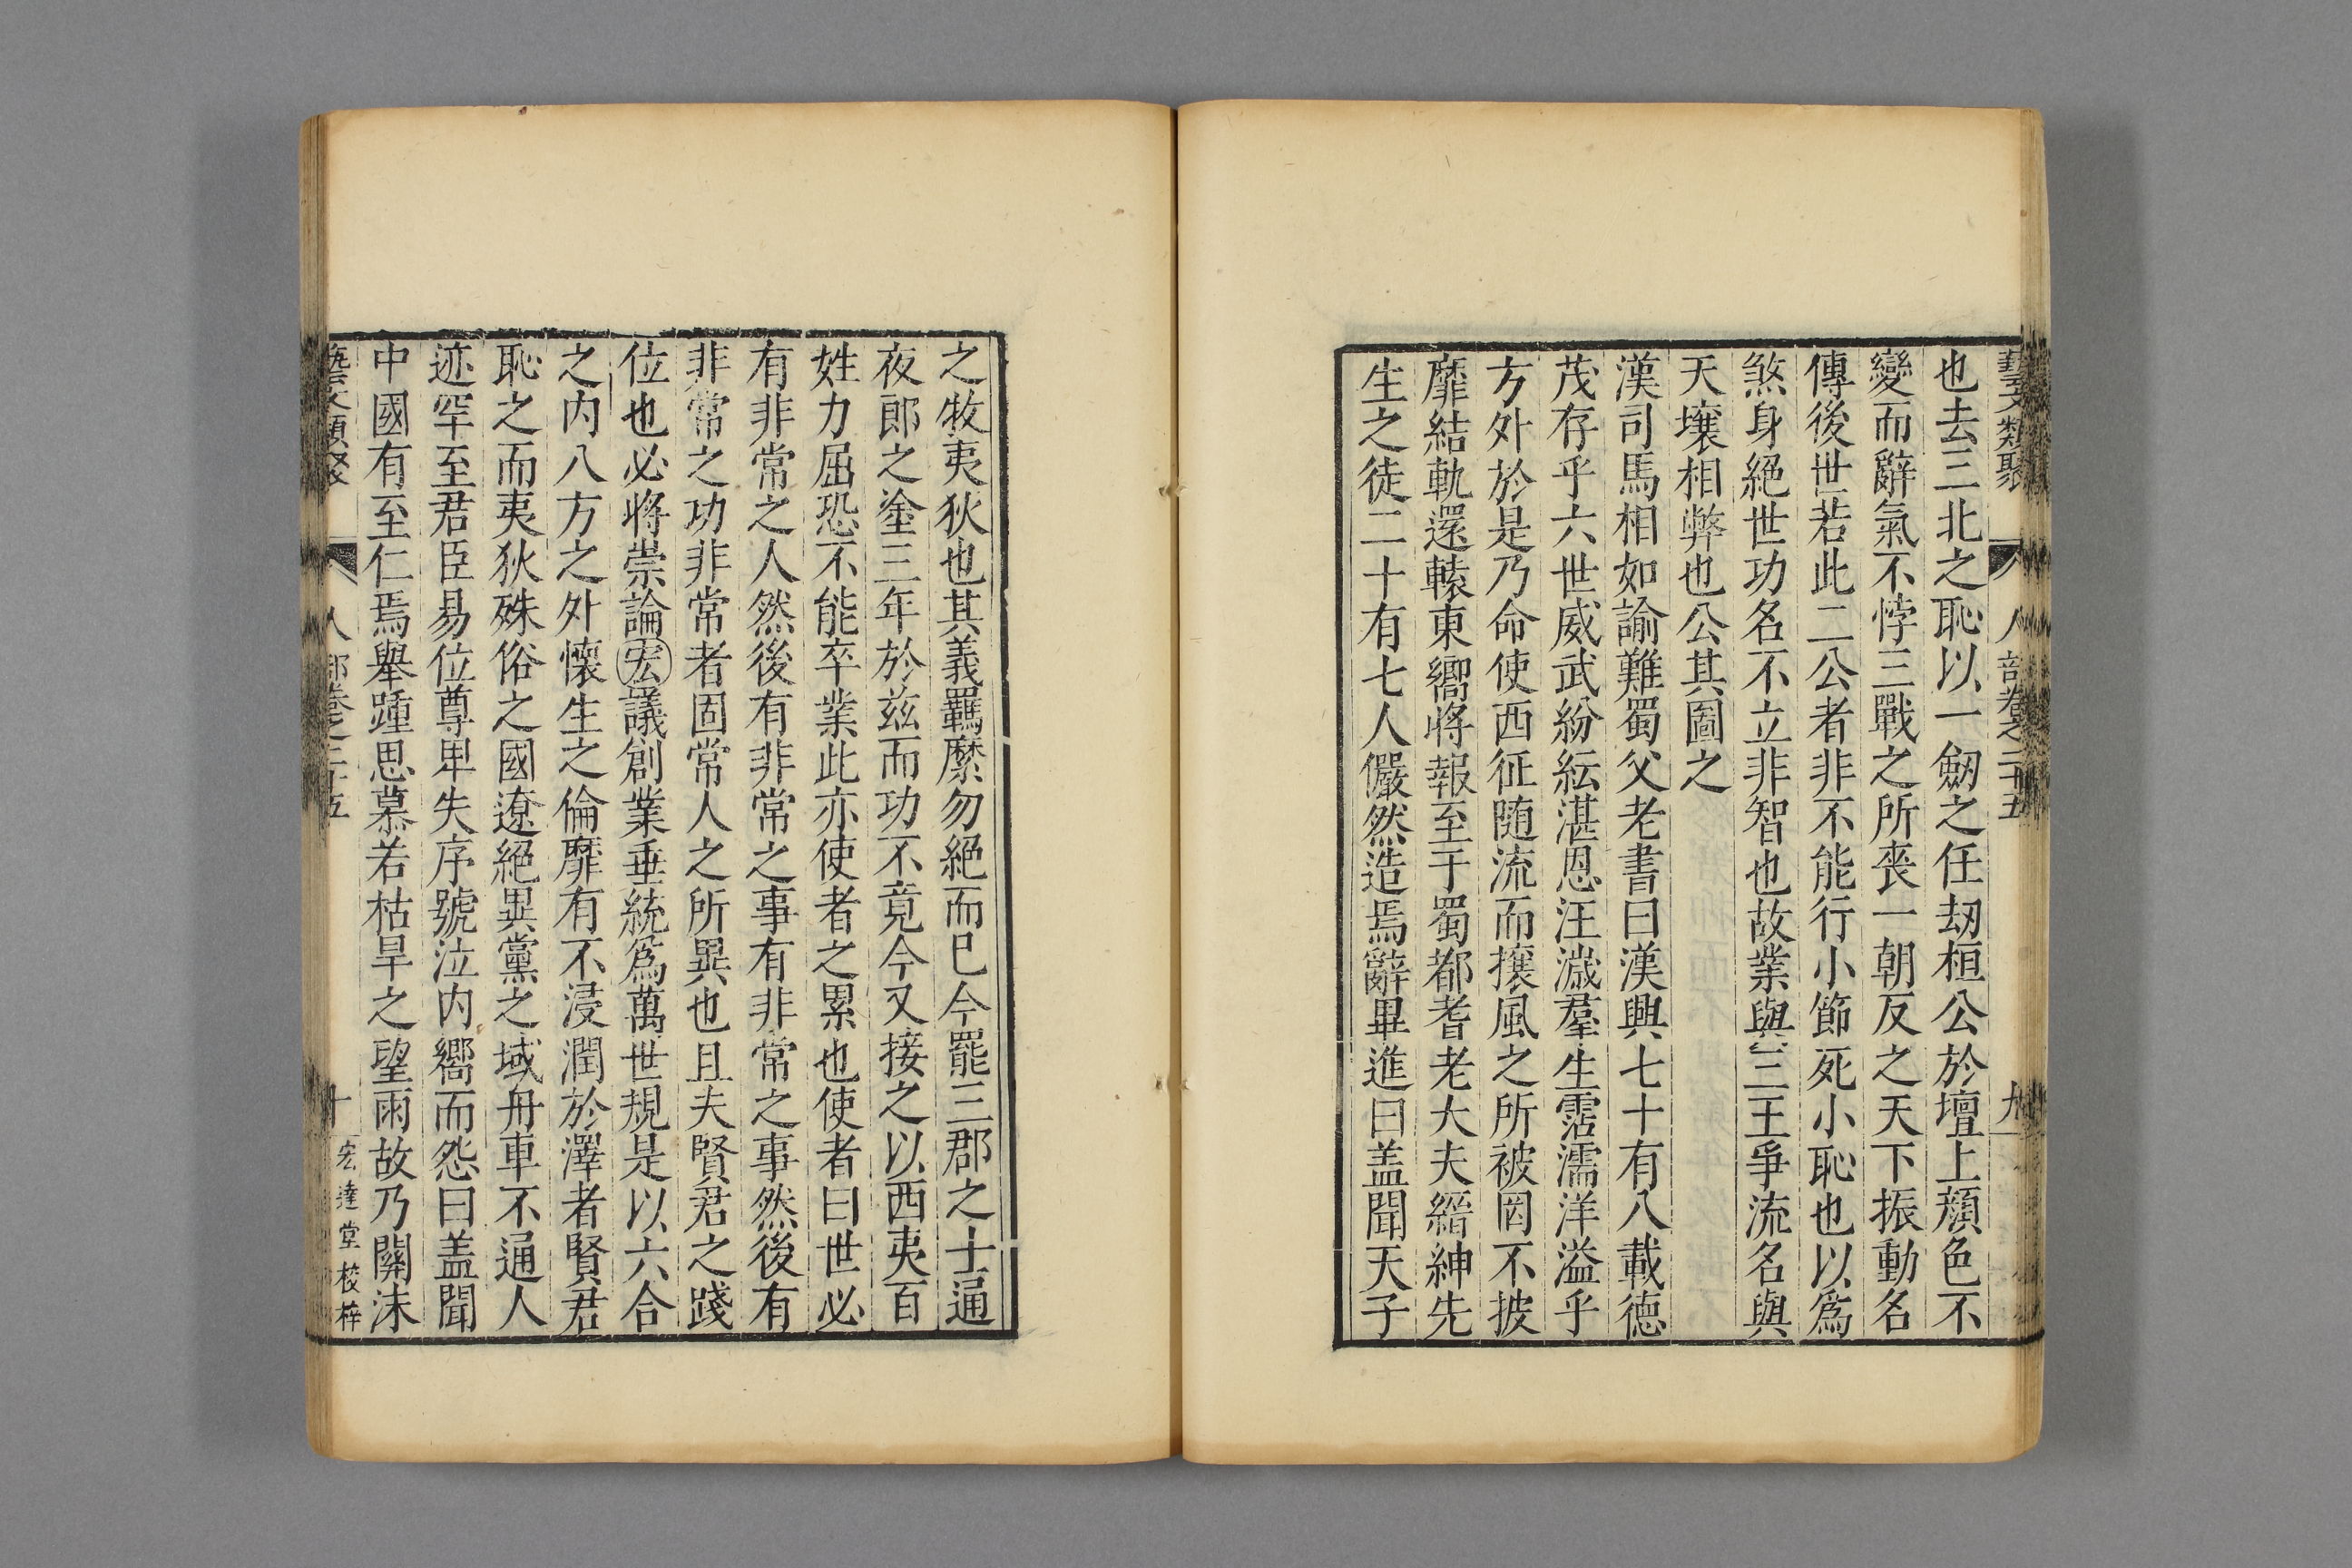 藝文類聚 人部卷之二十五 九
也去三北之恥以一劒之任刼桓公於壇上顔色不
變而辭氣不悖三戰之所喪一朝反之天下振動名
傳後世若此二公者非不能行小節死小恥也以爲
煞身絕世功名不立非智也故業與三王爭流名與
天壤相弊也公其圖之
漢司馬相如諭難蜀父老書曰漢興七十有八載德
茂存乎六世威武紛紜湛恩汪濊羣生霑濡洋溢乎
方外於是乃命使西征随流而攘風之所被罔不披
靡結軌還轅東嚮將報至于蜀都耆老大夫縉紳先
生之徒二十有七人儼然造焉辭畢進曰盖聞天子
之牧夷狄也其義羈縻勿絕而巳今罷三郡之士通
夜郎之塗三年於茲而功不竟今又接之以西夷百
姓力屈恐不能卒業此亦使者之累也使者曰世必
有非常之人然後有非常之事有非常之事然後有
非常之功非常者固常人之所異也且夫賢君之踐
位也必將崇論宏議創業垂統爲萬世規是以六合
之内八方之外懷生之倫靡有不浸潤於澤者賢君
恥之而夷狄殊俗之國遼絕異黨之域舟車不通人
迹罕至君臣易位尊卑失序號泣内嚮而怨曰盖聞
中國有至仁焉舉踵思慕若枯旱之望雨故乃關沫
藝文類聚 人部卷之二十五 十 宏達堂校梓